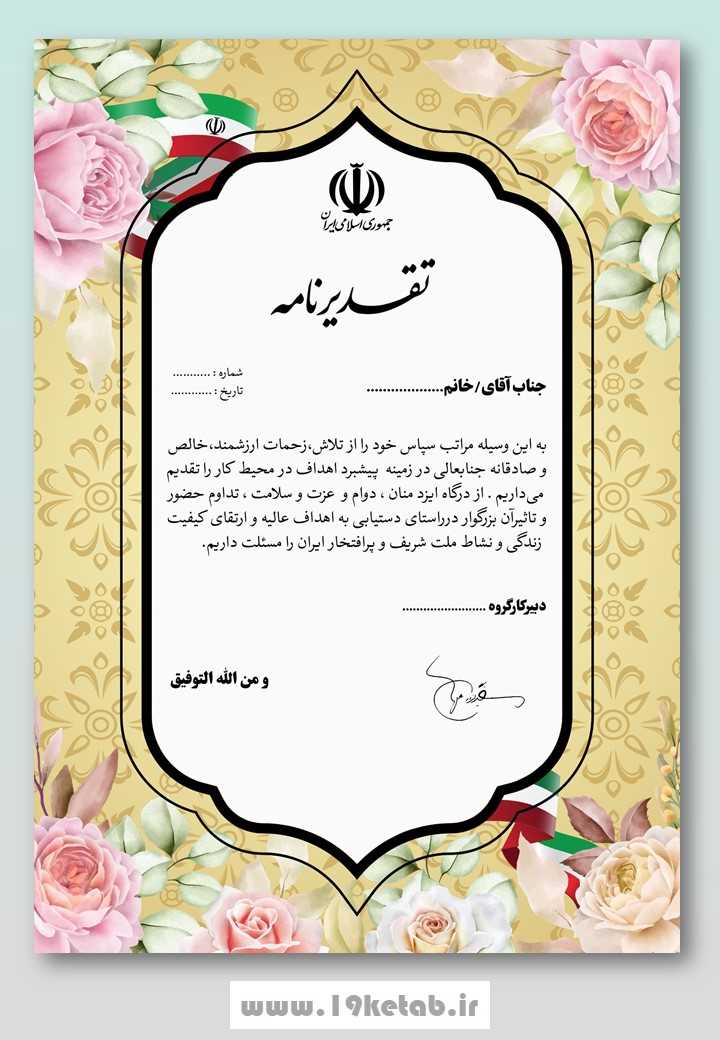 جمهوری اسلامی ایران
تقدیرنامه
شماره : ...........
تاریخ : ............
جناب آقای/خانم...................
به این وسیله مراتب سپاس خود را از تلاش،زحمات ارزشمند،خالص
و صادقانه جنابعالی در زمینه پیشبرد اهداف در محیط کار را تقدیم
می‌داریم . از درگاه ایزد منان ، دوام و عزت و سلامت ، تداوم حضور
و تاثیرآن بزرگوار درراستای دستیابی به اهداف عالیه و ارتقای کیفیت
زندگی و نشاط ملت شریف و پرافتخار ایران را مسئلت داریم.
دبیرکارگروه ........................
و من الله التوفیق
www.19ketab.ir